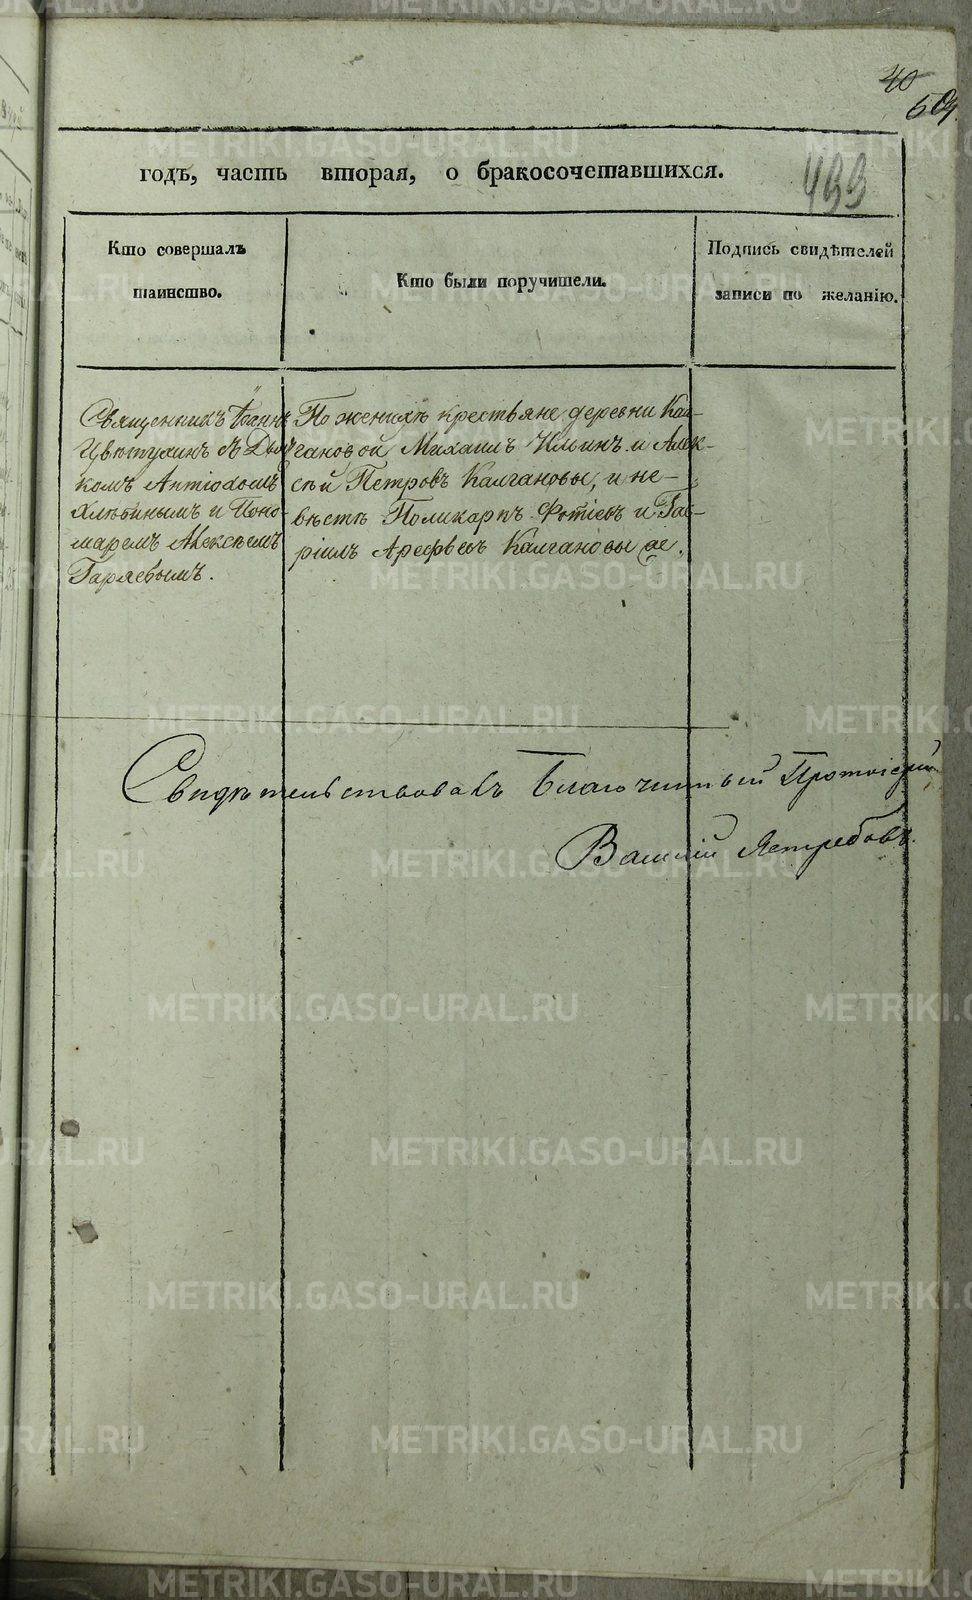 40
годъ, часть вторая, о бракосочетавшихся.
499
Кто совершалъ
таинство.
Кто были поручители.
Подпись свидѣтелей
записи по желанію.
Священникъ Іоаннъ
Цвѣтухинъ съ Дьяч
комъ Антіохомъ
Хлѣбинымъ и Поно
маремъ Алексѣемъ
Гаряевымъ.
По женихѣ крестьяне деревни Кал-
гановой Михаилъ Ильинъ и Алек-
сѣй Петровъ Калгановы, и не-
вѣстѣ Поликарпъ Фотіевъ и Гав-
ріилъ Арефьевъ Калгановы же.
Свидѣтельствовалъ Благочинный Протоіерей
Василій Ястребовъ.
METRIKI.GASO-URAL.RU